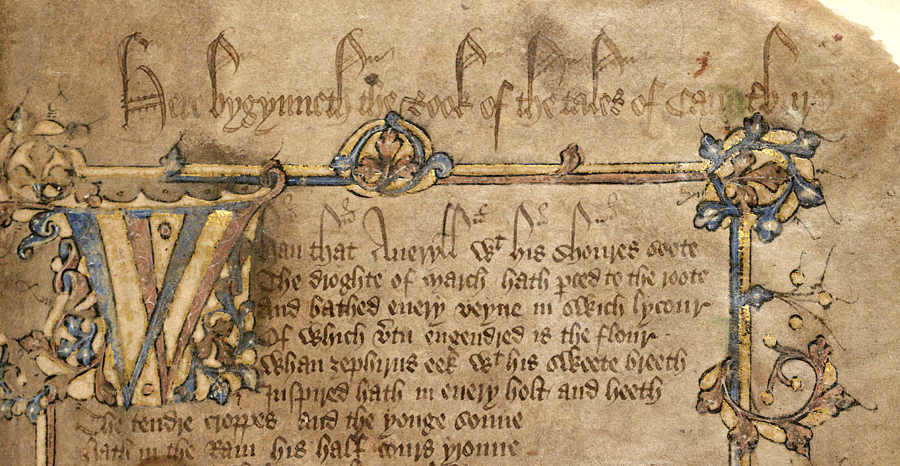 Here bygynneth the Book of the tales of Caunterbury
Whan that Aueryll wᵗ his shoures soote
The droghte of march hath ꝑced to the roote
And bathed euery veyne in swich lycour
Of which v̄tu engendred is the flour
Whan zephirus eek wᵗ his sweete breeth
Inspired hath in euery holt and heeth
The tendre croppes and the yonge sonne
Hath in the Ram his half cours yronne